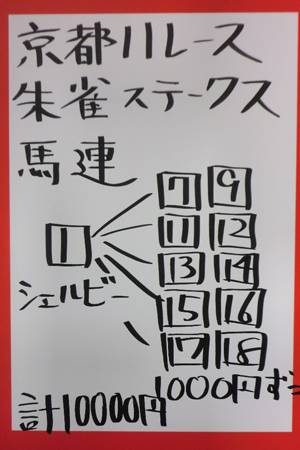 京都11レース
朱雀ステークス
馬連
7 9
11 12
1
13 14
シェルビー
15 16
17 18
1000円ずつ
計10000円